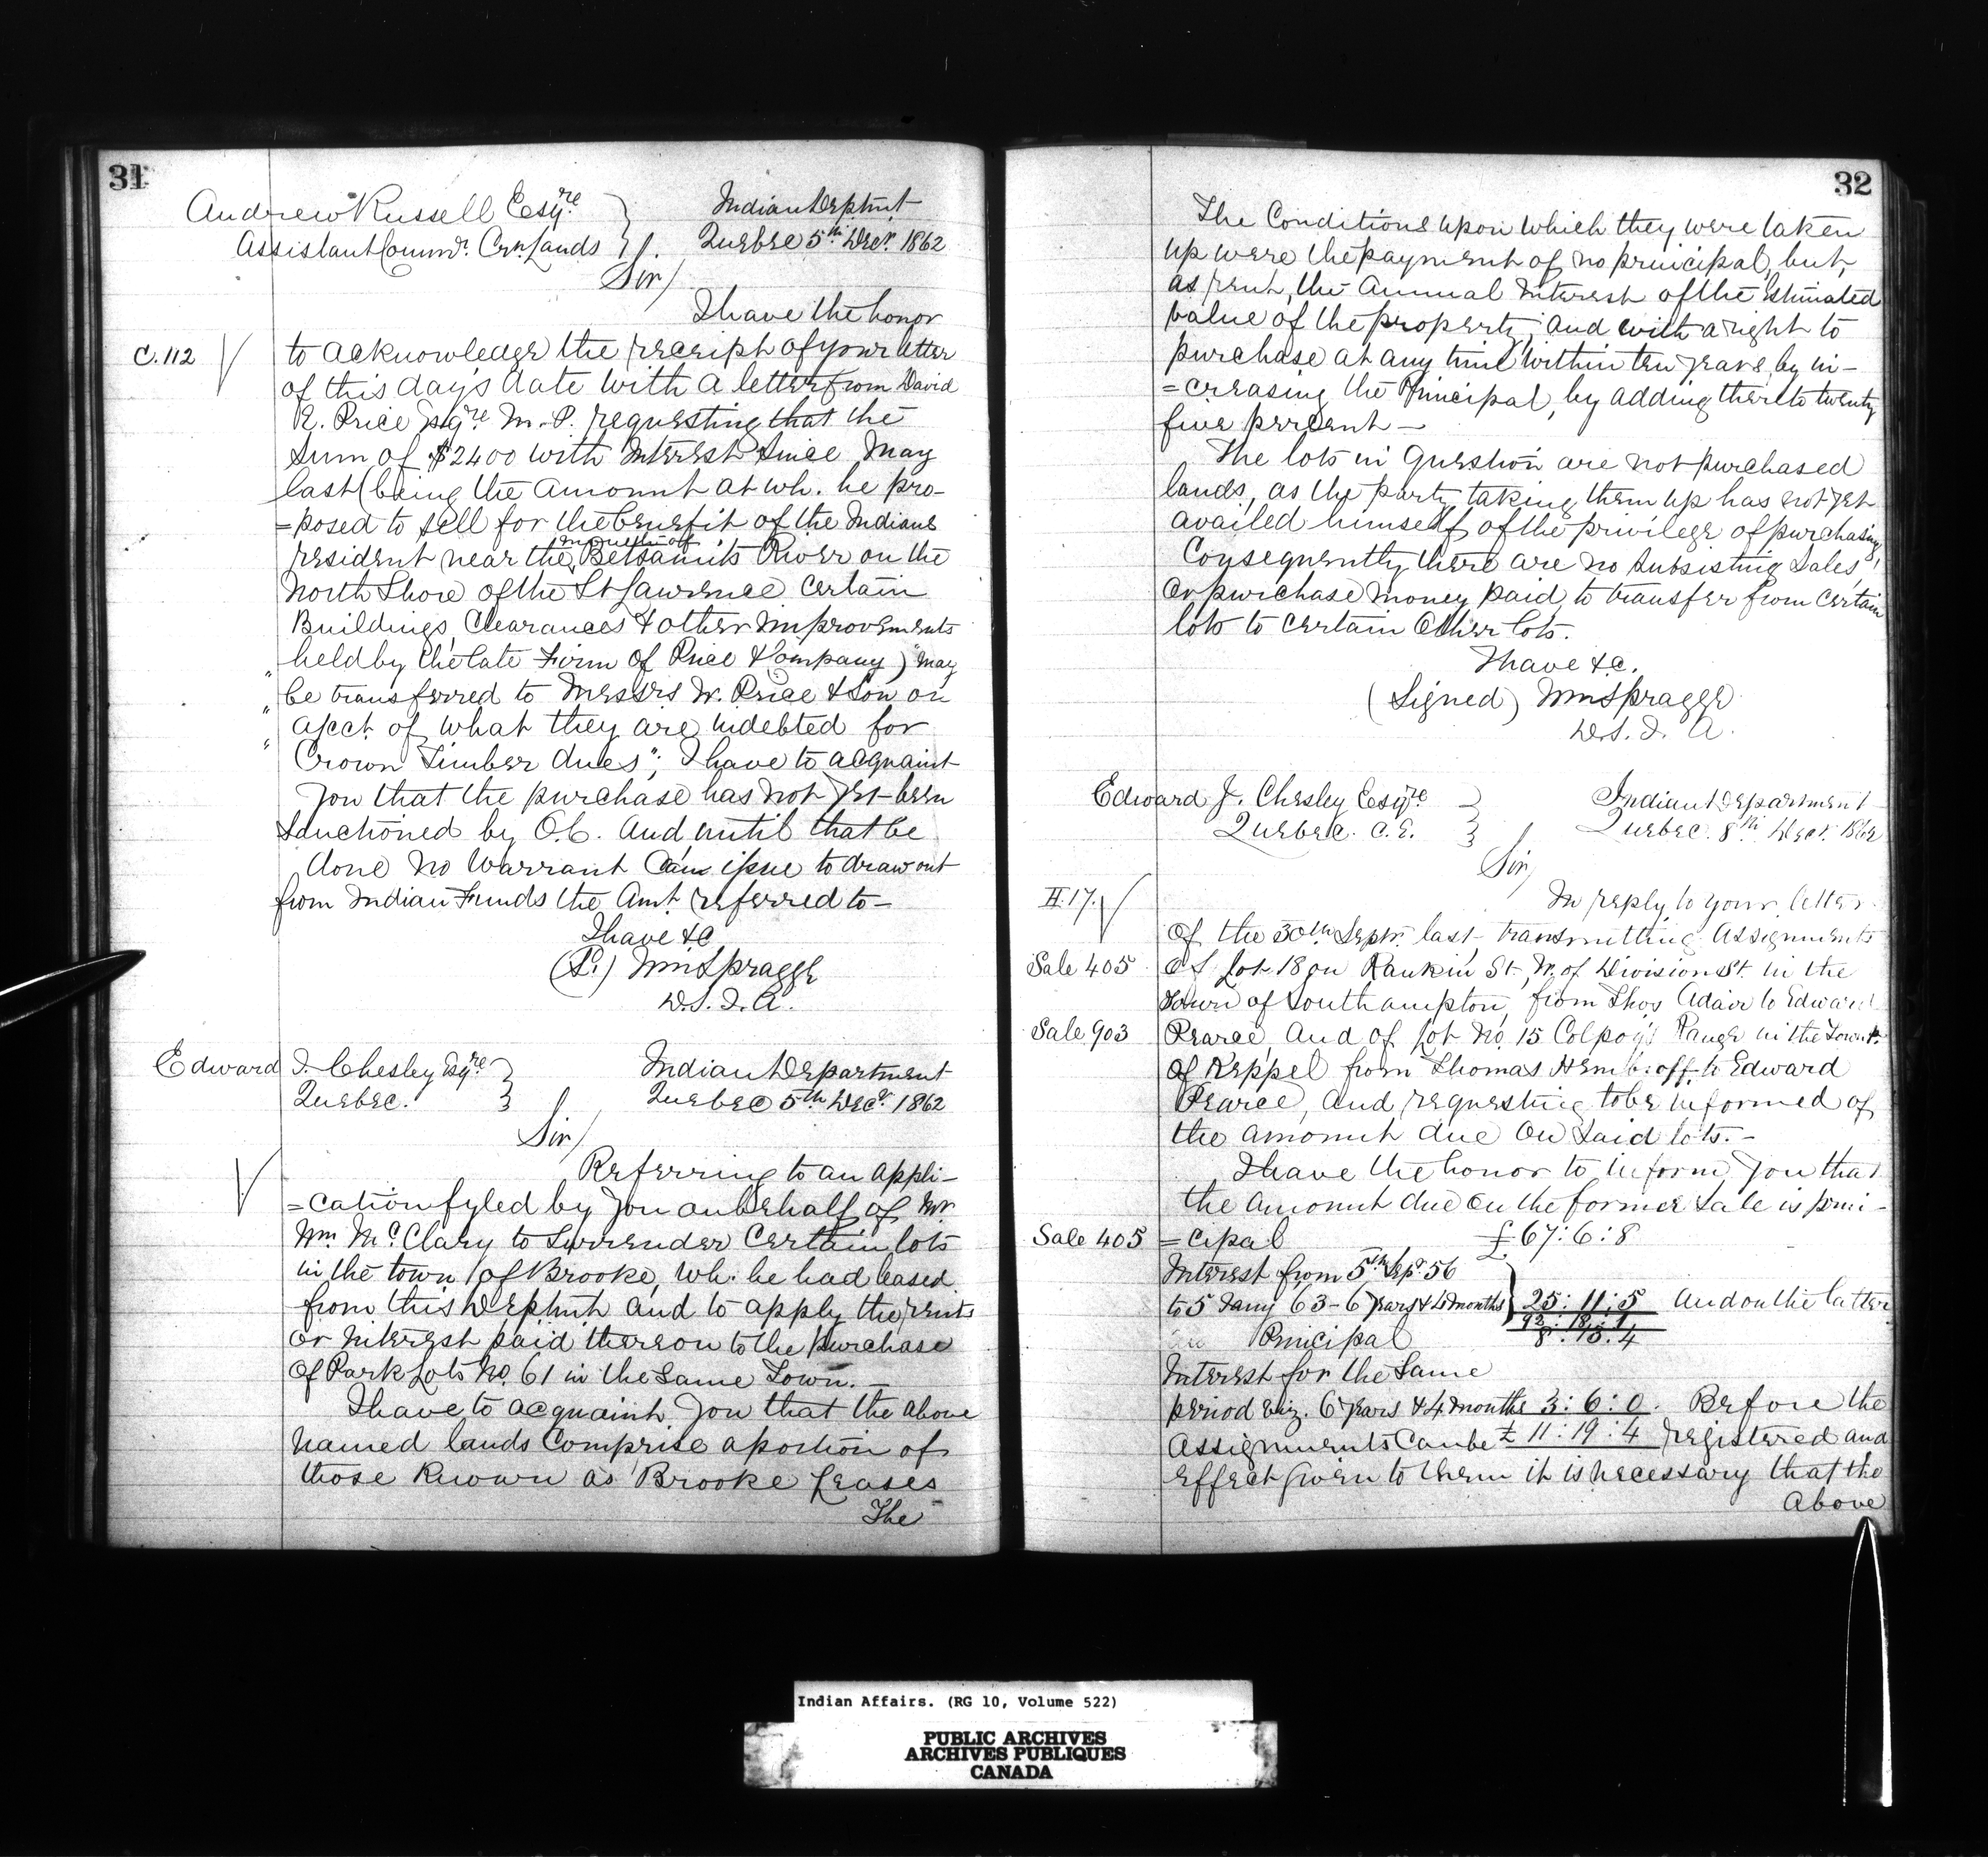 31
Andrew Russell Esqre
Assistant Commr. Crn. Lands
Indian Deptmt
Quebec 5th Decr. 1862
Sir/
I have the honor
C. 112
to acknowledge the receipt of your letter
of this day's date with a letter from David
E. Price Esqre M. P. requesting that the
Sum of $2400 with Interest since May
last (being the amount at wh. he pro-
=posed to sell for the benefit of the Indians
resident near the mouth of Betsamits River on the
North Shore of the St Lawrence certain
Buildings, Clearances & other Improvements
held by the late Firm of Price & Company) "may
"be transferred to Messrs W. Price & Son on
"acct. of what they are indebted for
"Crown Timber dues"; I have to acquaint
you that the purchase has not yet been
sanctioned by O. C. and until that be
done no Warrant can issue to draw out
from Indian Funds the Amt. referred to—
I have &c
(S.) Wm Spragge
D. S. I. A.
Edward J. Chesley Esqre
Quebec.
Indian Department
Quebec 5th Decr. 1862
Sir/
Referring to an appli-
=cation fyled by you on behalf of Mr
Wm. McClary to Surrender Certain lots
in the town of Brooke, wh. he had leased
from this Deptmt. and to apply the rents
or interest paid thereon to the purchase
of Park Lots No. 61 in the same Town.—
I have to acquaint you that the above
named lands comprise a portion of
those known as Brooke Leases
The
32
The Conditions upon which they were taken
up were the payment of no principal, but,
as rent, the Annual Interest of the Estimated
value of the property; and with a right to
purchase at any time within ten years, by in-
=creasing the Principal, by adding thereto twenty
five percent—
The lots in question are not purchased
lands, as the party taking them up has not yet
availed himself of the privilege of purchasing,
Consequently there are no subsisting Sales,
or purchase money paid, to transfer from certain
lots to certain other lots.
I have &c.
(Signed) Wm Spragge
D. S. I. A.
Edward J. Chesley Esqre
Quebec. C. E.
Indian Department
Quebec. 8th Decr. 1862
Sir/
H. 17.
In reply to your letter
of the 30th Septr. last transmitting Assignments
Sale 405
of Lot 18 on Rankin St. W. of Division St. in the
Town of Southampton, from Thos Adair to Edward
Sale 903
Pearce, and of lot No. 15 Colpoy's Range in the Townp.
of Keppel from Thomas Hembroff to Edward
Pearce, and requesting to be informed of
the amount due on said lots.—
I have the honor to inform you that
the amount due on the former Sale is prin-
Sale 405
=cipal £67: 6: 8
Interest from 5th Sepr. 56
to 5 Jany 63 – 6 years & 4 months 25: 11: 5 And on the latter
92: 18: 1
Principal 8: 13: 4
Interest for the same
period viz. 6 years & 4 months 3: 6: 0. Before the
Assignments Can be £ 11: 19: 4 registered and
effect given to them it is necessary that the
Above
Indian Affairs. (RG 10, Volume 522)
PUBLIC ARCHIVES
ARCHIVES PUBLIQUES
CANADA